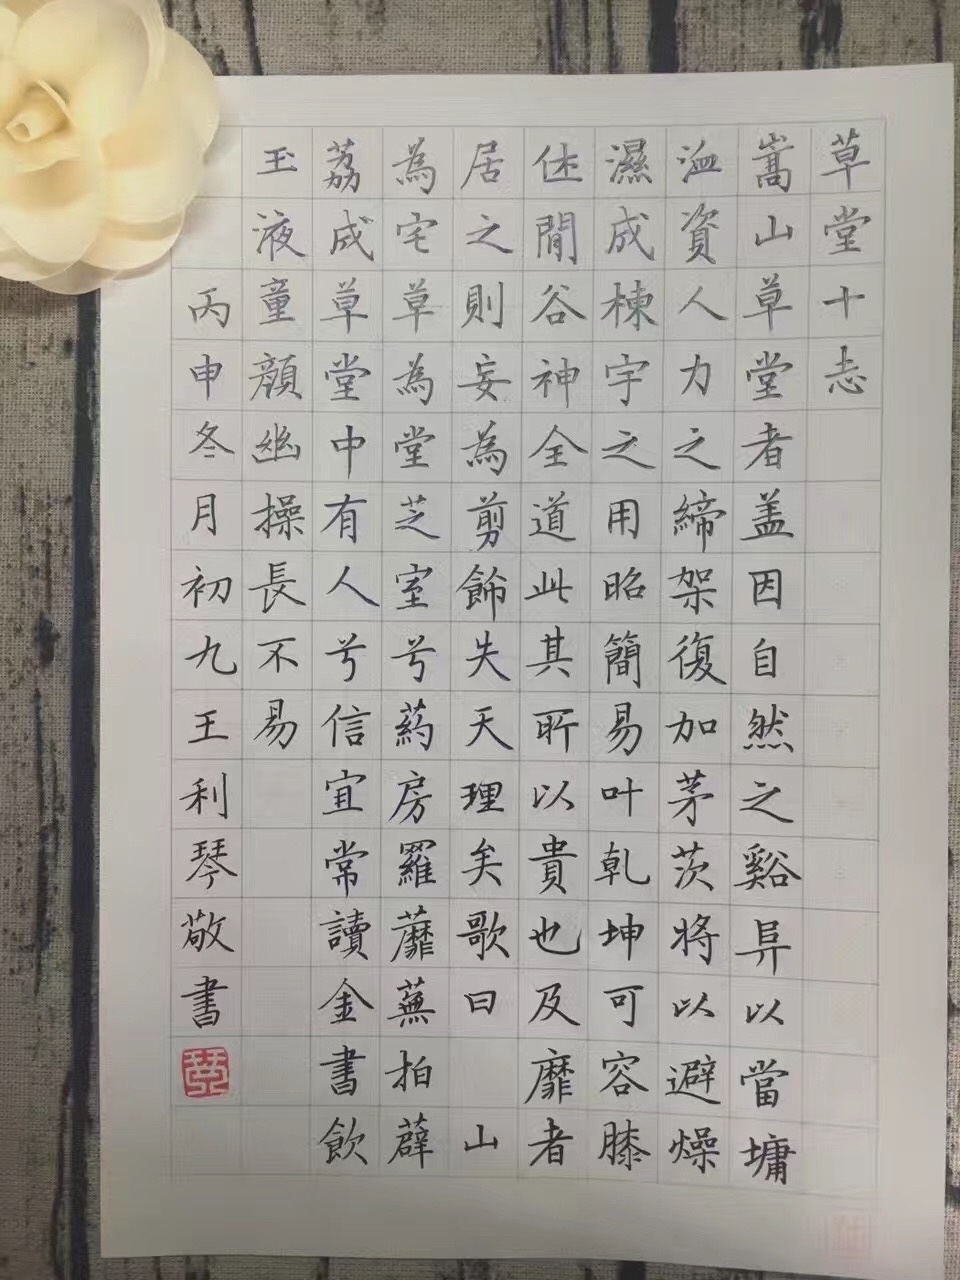 草堂十志
嵩山草堂者盖因自然之谿阜以當墉
洫資人力之締架復加茅茨將以避燥
濕成棟宇之用昭簡易叶乾坤可容膝
休閒谷神全道此其所以貴也及靡者
居之則妄為剪餙失天理矣歌曰 山
為宅草為堂芝室兮葯房羅蘼蕪拍薜
荔成草堂中有人兮信宜常讀金書飲
玉液童顏幽操長不易
丙申冬月初九王利琴敬書